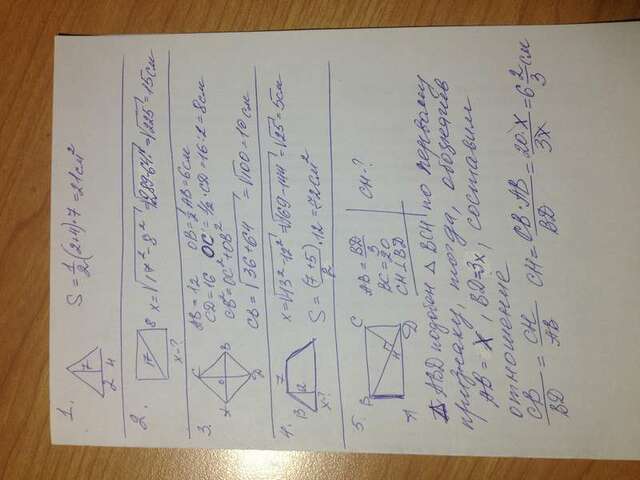 1.
7
2 4
S = 1/2 (2+4)·7 = 21см²
2.
17 8
x-?
x = √17²-8² = √289-64 = √225 = 15см
3.
C
A O B
D
AB = 12 OB = 1/2 AB = 6см
CD = 16 OC = 1/2·CD = 16:2 = 8см
CB² = OC² + OB²
CB = √36+64 = √100 = 10 см
4.
7
13 12
x-?
x = √13²-12² = √169-144 = √25 = 5см
S = (7+5)/2 · 12 = 72см²
5.
B C
A H D
AB = BD/3
BC = 20
CH ⊥ BD
CH-?
Δ ABD подобен Δ BCH по первому
признаку, тогда, обозначив
AB = x, BD = 3x, составим
отношение
CB/BD = CH/AB CH = CB·AB/BD = 20·x/3x = 6 2/3 см